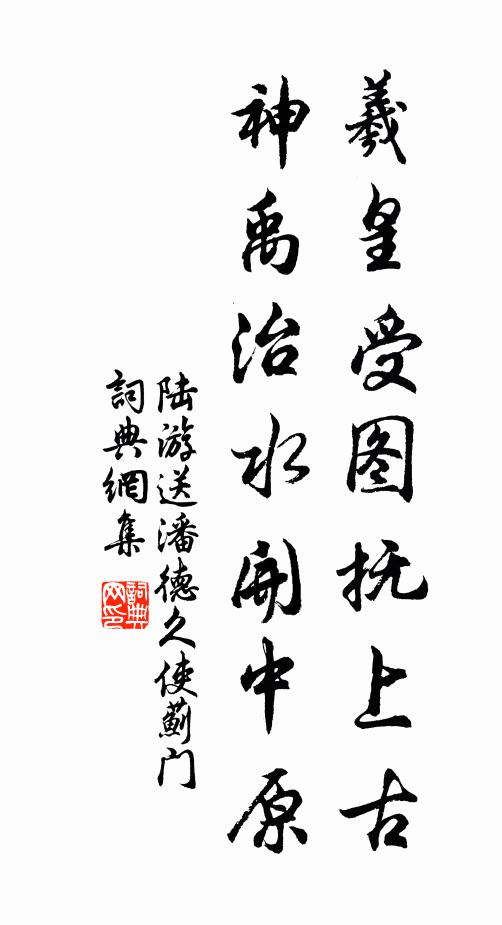 羲皇受图抚上古
神禹治水開中原
陆游送潘德久使薊门
詞典網集
詞典网印